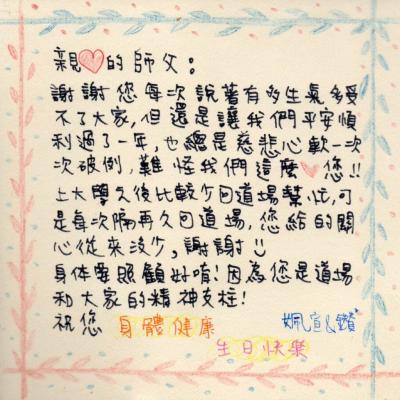 親♡的師父：
謝謝您每次說著有多生氣多受
不了大家,但還是讓我們平安順
利過了一年,也總是慈悲心軟一次
次破例,難怪我們這麼♡您!!
上大學之後比較少回道場幫忙,可
是每次隔再久回道場,您給的關
心從來沒少,謝謝!!
身体要照顧好唷!因為您是道場
和大家的精神支柱!
祝您 身體健康 姵宣&鑽
生日快樂